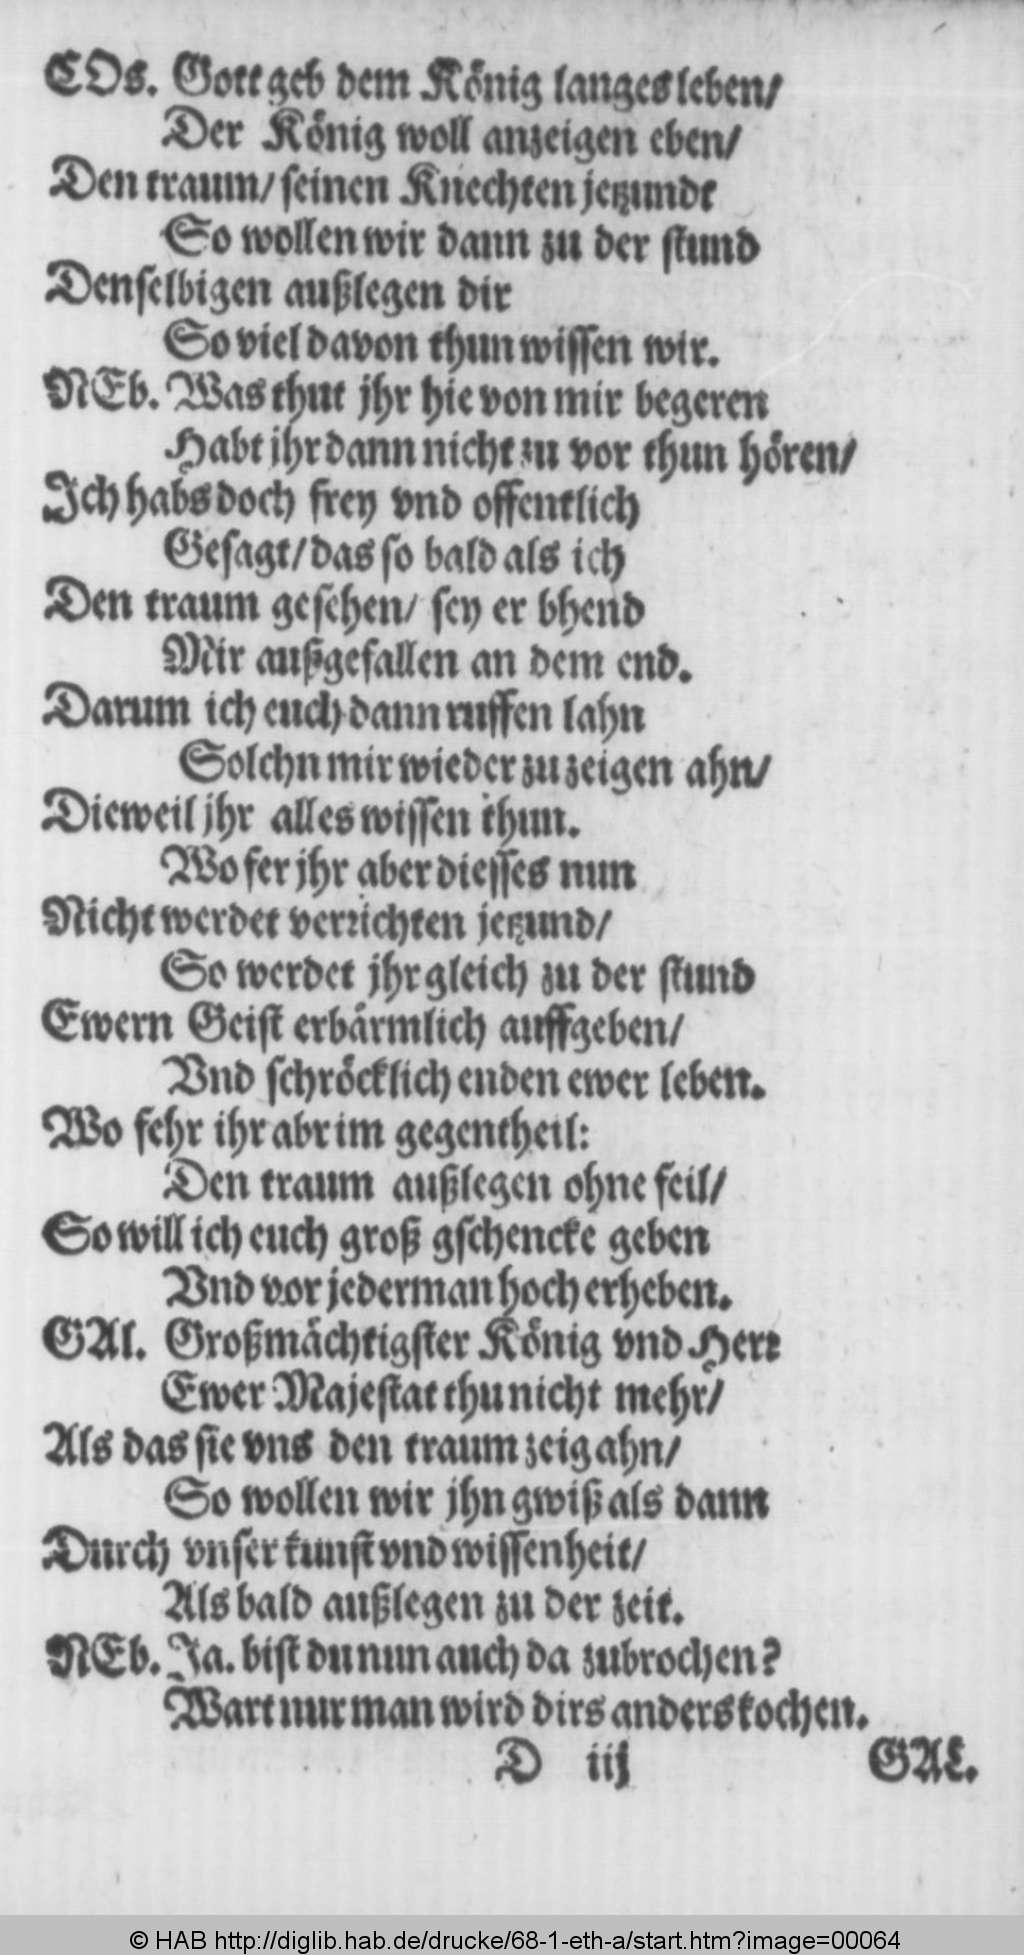 COs. Gott geb dem König langes leben/
Der König woll anzeigen eben/
Den traum/ seinen Knechten jetzundt
So wollen wir dann zu der stund
Denselbigen außlegen dir
So viel davon thun wissen wir.
NEb. Was thut jhr hie von mir begeren
Habt jhr dann nicht zu vor thun hören/
Ich habs doch frey vnd offentlich
Gesagt/ das so bald als ich
Den traum gesehen/ sey er bhend
Mir außgefallen an dem end.
Darum ich euch dann ruffen lahn
Solchn mir wieder zu zeigen ahn/
Dieweil jhr alles wissen thun.
Wo fer jhr aber diesses nun
Nicht werdet verrichten jetzund/
So werdet jhr gleich zu der stund
Ewern Geist erbärmlich auffgeben/
Vnd schröcklich enden ewer leben.
Wo fehr ihr abr im gegentheil:
Den traum außlegen ohne feil/
So will ich euch groß gschencke geben
Vnd vor jederman hoch erheben.
GAl. Großmächtigster König vnd Herr
Ewer Majestat thu nicht mehr/
Als das sie vns den traum zeig ahn/
So wollen wir jhn gwiß als dann
Durch vnser kunst vnd wissenheit/
Als bald außlegen zu der zeit.
NEb. Ja. bist du nun auch da zubrochen?
Wart nur man wird dirs anders kochen.
D iij GAL.
© HAB http://diglib.hab.de/drucke/68-1-eth-a/start.htm?image=00064